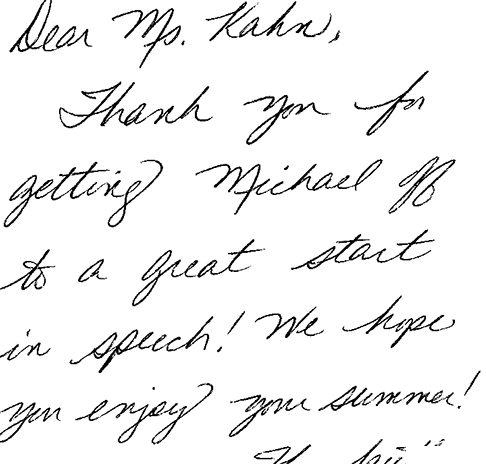 Dear Ms. Kahn,
Thank you for
getting Michael off
to a great start
in speech! We hope
you enjoy your summer!